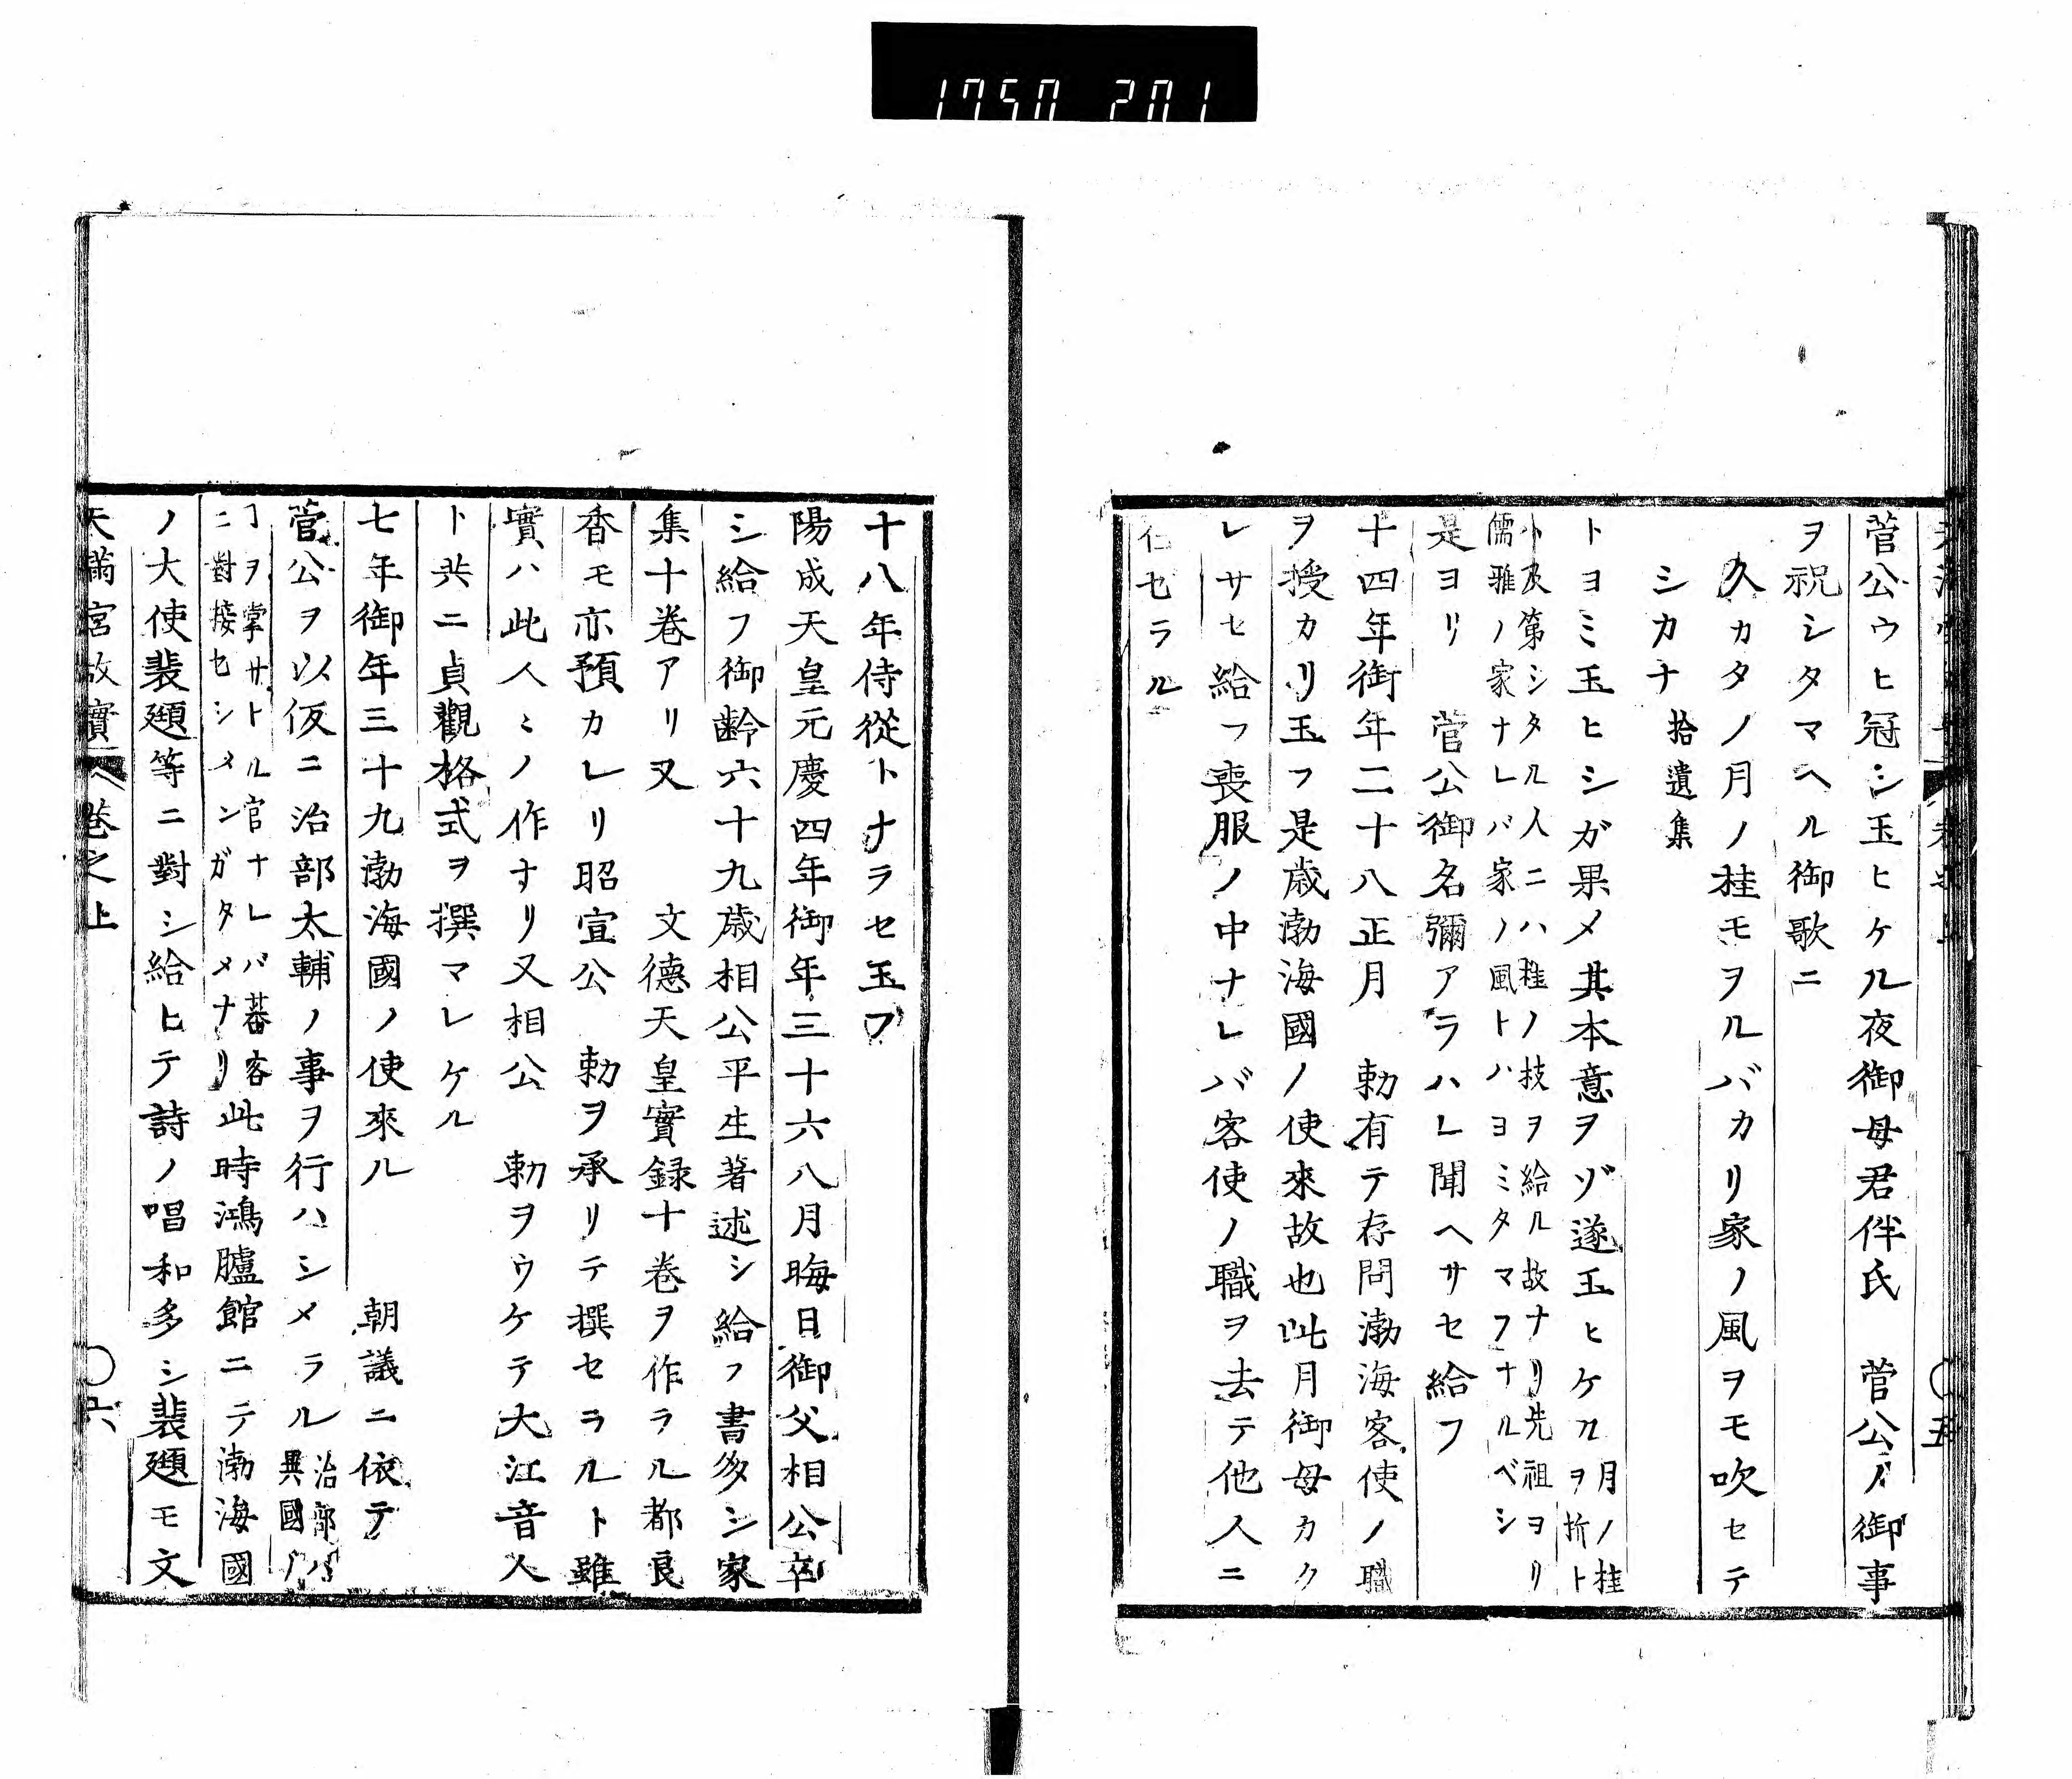 1750 201
菅公ウヒ冠シ玉ヒケル夜御母君伴氏　菅公ノ御事
ヲ祝シタマヘル御歌ニ
久カタノ月ノ桂モヲルバカリ家ノ風ヲモ吹セテ
シカナ　拾遺集
トヨミ玉ヒシガ果メ其本意ヲゾ遂玉ヒケル月ノ桂ヲ折ト
ト及第シタル人ニハ桂ノ技ヲ給ル故ナリ先祖ヨリ
儒雅ノ家ナレバ家ノ風トハヨミタマフナルベシ
是ヨリ　菅公御名彌アラハレ聞ヘサセ給フ
十四年御年二十八正月　勅有テ存問渤海客使ノ職
ヲ授カリ玉フ是歳渤海國ノ使來故也此月御母カク
レサセ給フ喪服ノ中ナレバ客使ノ職ヲ去テ他人ニ
仕セラル
〇五
十八年侍從トナラセ玉フ
陽成天皇元慶四年御年三十六八月晦日御父相公卒
シ給フ御齢六十九歳相公平生著述シ給フ書多シ家
集十巻アリ又　文德天皇實録十巻ヲ作ラル都良
香モ亦預カレリ昭宣公　勅ヲ承リテ撰セラルト雖
實ハ此人ミノ作ナリ又相公　勅ヲウケテ大江音人
ト共ニ貞觀格式ヲ撰マレケル
七年御年三十九渤海國ノ使來ル　朝議ニ依テ
菅公ヲ以仮ニ治部太輔ノ事ヲ行ハシメラル治部ハ異國ノ
ヿヲ掌サトル官ナレバ蕃客
ニ對接セシメンガタメナリ此時鴻臚館ニテ渤海國
ノ大使裴頲等ニ對シ給ヒテ詩ノ唱和多シ裴頲モ文
天滿宮故實　巻之上　〇六